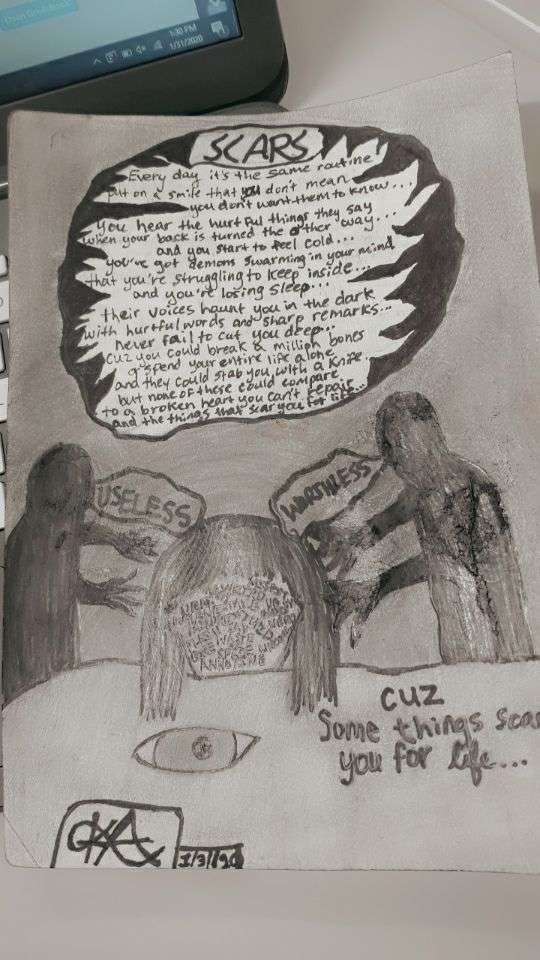 1:30 PM
1/31/2020
SCARS
Every day it's the same routine
put on a smile that you don't mean
you don't want them to know...
You hear the hurtful things they say
when your back is turned the other way...
and you start to feel cold...
you've got demons swarming in your mind
that you're struggling to keep inside...
and you're losing sleep...
their voices haunt you in the dark
with hurtful words and sharp remarks...
never fail to cut you deep...
cuz you could break a million bones
& spend your entire life alone
and they could stab you with a knife
but none of these could compare
to a broken heart you can't repair...
and the things that scar you for life...
USELESS
WORTHLESS
WASTE
SPACE
ANNOYING
cuz
Some things scar
you for life...
1/31/20